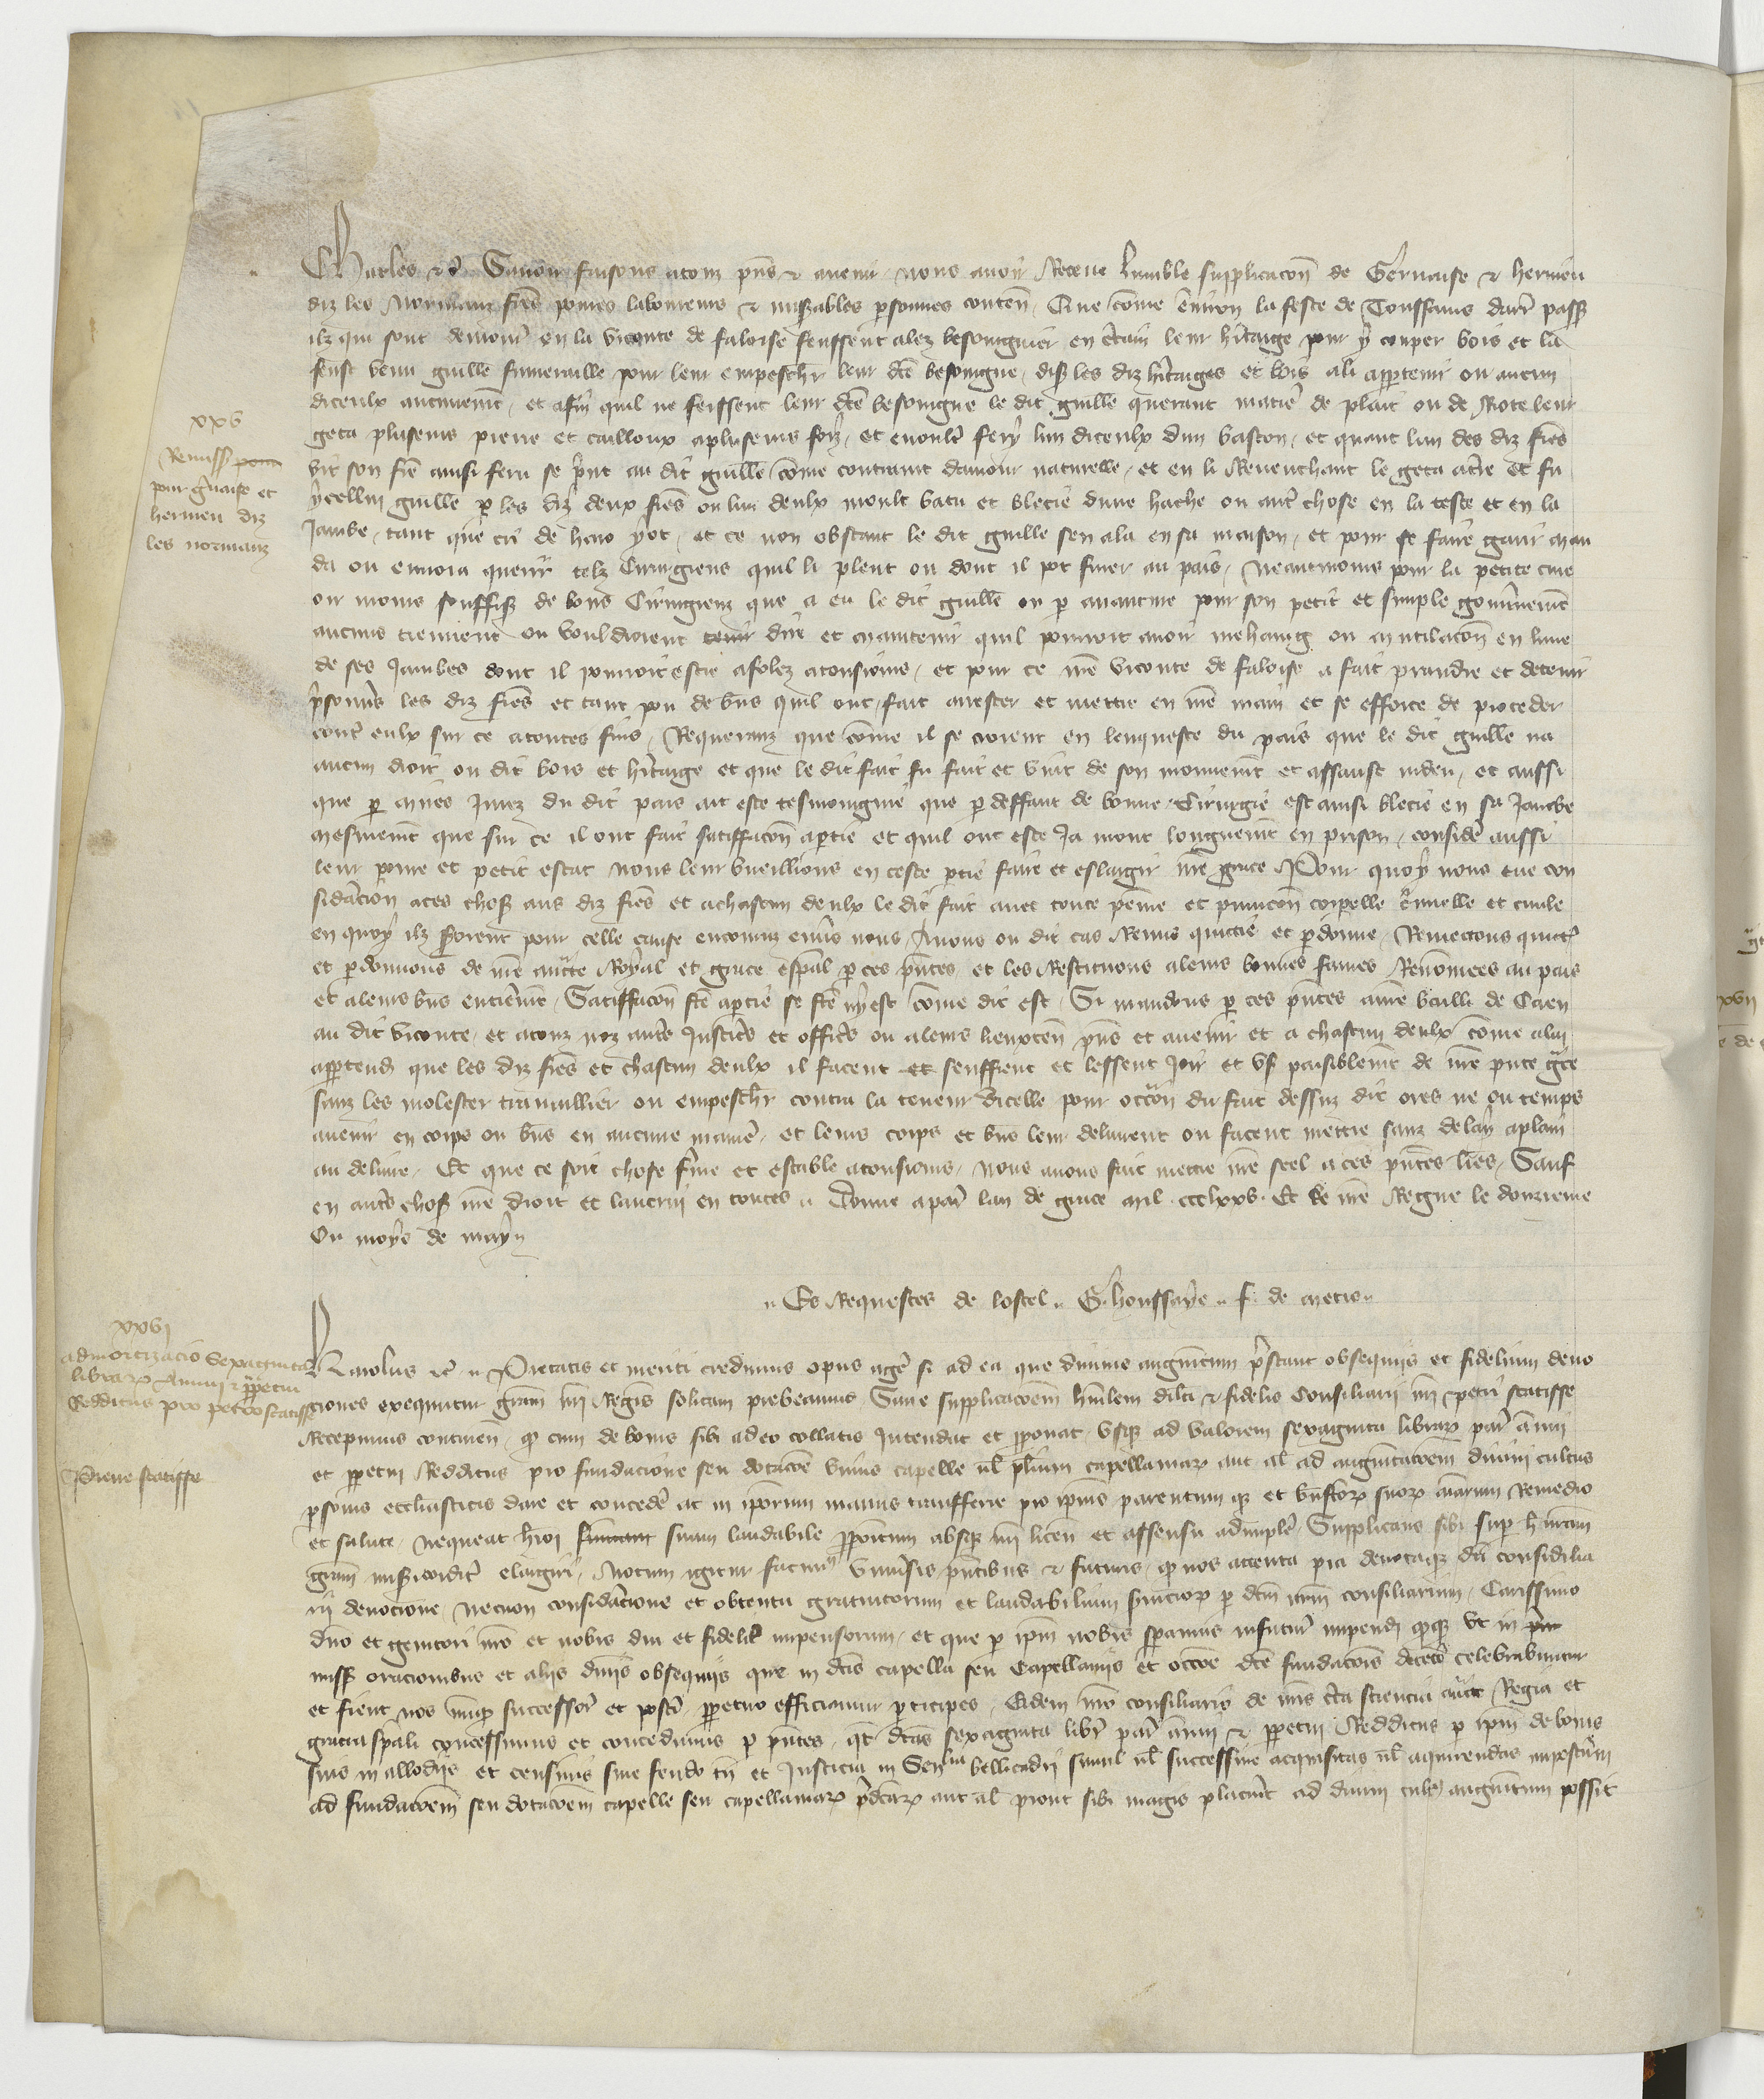 Charles etc. Savoir faisons a touz pñs et avenir nous avoir Receue lumble supplicacõn de Gervaise et hervieu
diz les Normanz freȓs povres laboureurs et miserables persõnes contenñ Que cõme environ la feste de Toussains darr̃ passe
ilz qui sont demour̃ en la viconte de faloise feussent alez besoingnier en c̃tain leur heritaige pour y couper bois et la
feust venu guill̃e fumeraille pour leur empescher leur dc̃e besoingne, dis les diz heritaiges et bois a li appartenir ou aucun
diceulx aucunemẽt, et afin quil ne feissent leur dc̃e besoingne le dit guill̃e querant matiere de plait ou de Riote leur
geta pluseurs pierre et cailloux a pluseurs foiz, et en oultr̃ fery lun diceulx dun baston, et quant lun des diz freȓs
vit son frer̃e ainsi feru se prnt au dit guill̃e cõme contraint damour naturelle, et en li Revenchant le geta a tr̃re et fu
ycellui guill̃e p les diz deux freȓs ou lun deulx moult batu et blecie dune hache ou autr̃ chose en la teste et en la
Jambe, tant que cri de haro y ot, et ce non obstant le dit guill̃e sen ala en sa maison, et pour se faire garir man
da ou envoia querir telz Cirurgiens quil li pleut ou dont il pot finer au pais, Neantmoins pour la petite cure
ou moins souffis̃ de bons Cirurgienz que a eu le dit guill̃e ou p avanture pour son petit et simple gouv̾nemẽt
aucuns tiennent ou vouldroient tenir dire et maintenir quil pourroit avoir mehaing ou mutilacõn en lune
de ses Jambes dont il pourroit estre afolez a tousiours, et pour ce nr̃e viconte de faloise a fait prandre et detenir
prisonnrs les diz freȓs et tant pou de biens quil ont fait arrester et mettre en nr̃e main et se efforce de proceder
contr̃ eulx sur ce a toutes fins, Requeranz que cõme il se croient en lenqueste du pais que le dit guill̃e na
aucun droit ou dit bois et heritaige et que le dit fait fu fait et vint de son mouvemẽt et assault indeu, et aussi
que p mires Jurez du dit pais ait este tesmoingnie que p deffaut de bonne Cirurgie est ainsi blecie en sa Jambe
mesmemẽt que sur ce il ont fait satiffacõn a ptie et quil ont este Ja mont longuemẽt en prison, consider̃ aussi
leur povre et petit estat nous leur vueillions en ceste ptie faire et eslargir nr̃e grace Pour quoy nous eue con
sideracion a ces choses aus diz freȓs et a chascun deulx le dit fait avec toute peine et punicõn corporelle crimnelle et civile
en quoy ilz seroient pour celle cause encouruz envers nous, Avons ou dit cas Remis quictie et pdonne, Remettons quict̃
et pdonnons de nr̃e auct̃te Royal et grace esp̃al p ces pñtes et les Restituons a leurs bonnes fames Renõmees au pais
et a leurs biens entierem̃t, Satiffacõn fc̃e a ptie se fc̃e nyest cõme dit est, Si mandons p ces pñtes a nr̃e bailli de Caen
au dit viconte, et a touz noz autres Justicrs et officrs ou a leurs lieuxten̾ pñs et avenir et a chascun deulx cõme a lui
appartendra que les diz freȓs et chascun deulx il facent et seuffrent et lessent Joir et user paisiblemẽt de nr̃e pñte gr̃ce
sanz les molester travaillier ou empescher contra la teneur dicelle pour occõn du fait dessuz dit ores ne ou temps
avenir en corps ou biens en aucune maniere, et leurs corps et biens leur delivrent ou facent mettre sanz delay a plain
au delivre, Et que ce soit chose ferme et estable a tousiours, Nous avons fait mettre nr̃e seel a ces pñtes lr̃es, Sauf
en autrs choses nr̃e droit et lautrui en toutes, Donne a par̃ lan de grace mil.ccclxxv. Et de nr̃e Regne le douzieme
Ou moys de may
Es Requestes de lostel G. houssaye f. de metis
xxv
Remiss̃ pour
pour gervaise et
hervieu diz
les normanz
Karolus etc. Pietatis et meriti credimus opus ager̃ si ad ea que divine augm̃tum prestant obsequiis et fidelium devo
ciones exequntur gram̃ nr̃i Regis solitam prebeamus, Sane supplicacoem̃ humlem dilc̃i et fidelis Consiliarii nr̃i petri scatisse
Recepimus continen̾, q cum de bonis sibi a deo collatis Intendat et pponat, usq ad valorem sexaginta librar̾ par̃ annui
et ppetui Redditus pro fundacione seu dotacõe unius capelle vl̃ pl̃ium capellaniar̾ aut al̃ ad augm̃tacõem divini cultus
psonis ecclesiasticis dare et conceder̃ ac in ip̃orum manus transferre pro ipius parentum q et bn̾ctor̾ suor̾ aĩarum Remedio
et salute, Nequeat h̾moi suum laudabile ppositum absq nr̃i licen̾ et assensu adimpler̃, Supplicans sibi sup h̾ nr̃am
gram̃ misericorditr̃ elargiri, Notum igitur facim̾ universis pñtibus et futuris, q nos attenta pia devotaq dc̃i consiliia
rii devocione, necnon consideracione et obtentu gratuitorum et laudabilium servicior̾ p dc̃m nr̃m consiliarium, Carissimo
dño et genitori nr̃o et nobis diu et fidelitr̃ impensorum, et que p ip̃m nobis speramus in futur̃ impendi qq ut in
missis oracionibus et aliis divinis obsequiis que in dc̃is capella seu Capellaniis et occõe dc̃e fundacõis de ceto̾ celebrabuntur
et fient nos nr̃iq successor̃ et poster̃ ppetuo efficiamur pticipes, Eidem nr̃o consiliario de nr̃is c̃ta sciencia auct̃te Regia et
gracia sp̃ali concessimus et concedimus p pñtes, qt̃ dc̃as sexaginta libr̃ par̃ annui et ppetui Redditus p ip̃m de bonis
suis in allodiis et censivis sine feudo tñ et Justicia in Sen̾lia bellicadri simul vl̃ successive acquisitas vl̃ aquirendas imposterum
ad fundacõem seu dotacõem capelle seu capellaniar̾ predc̃ar̾ aut al̃ prout sibi magis placuerit ad divini cult̾ augm̃tum possit
xxvi
admortizacio Sexaginta
librar̾ Annui et ppetui
Redditus pro petro scatisse
Pierre scatisse